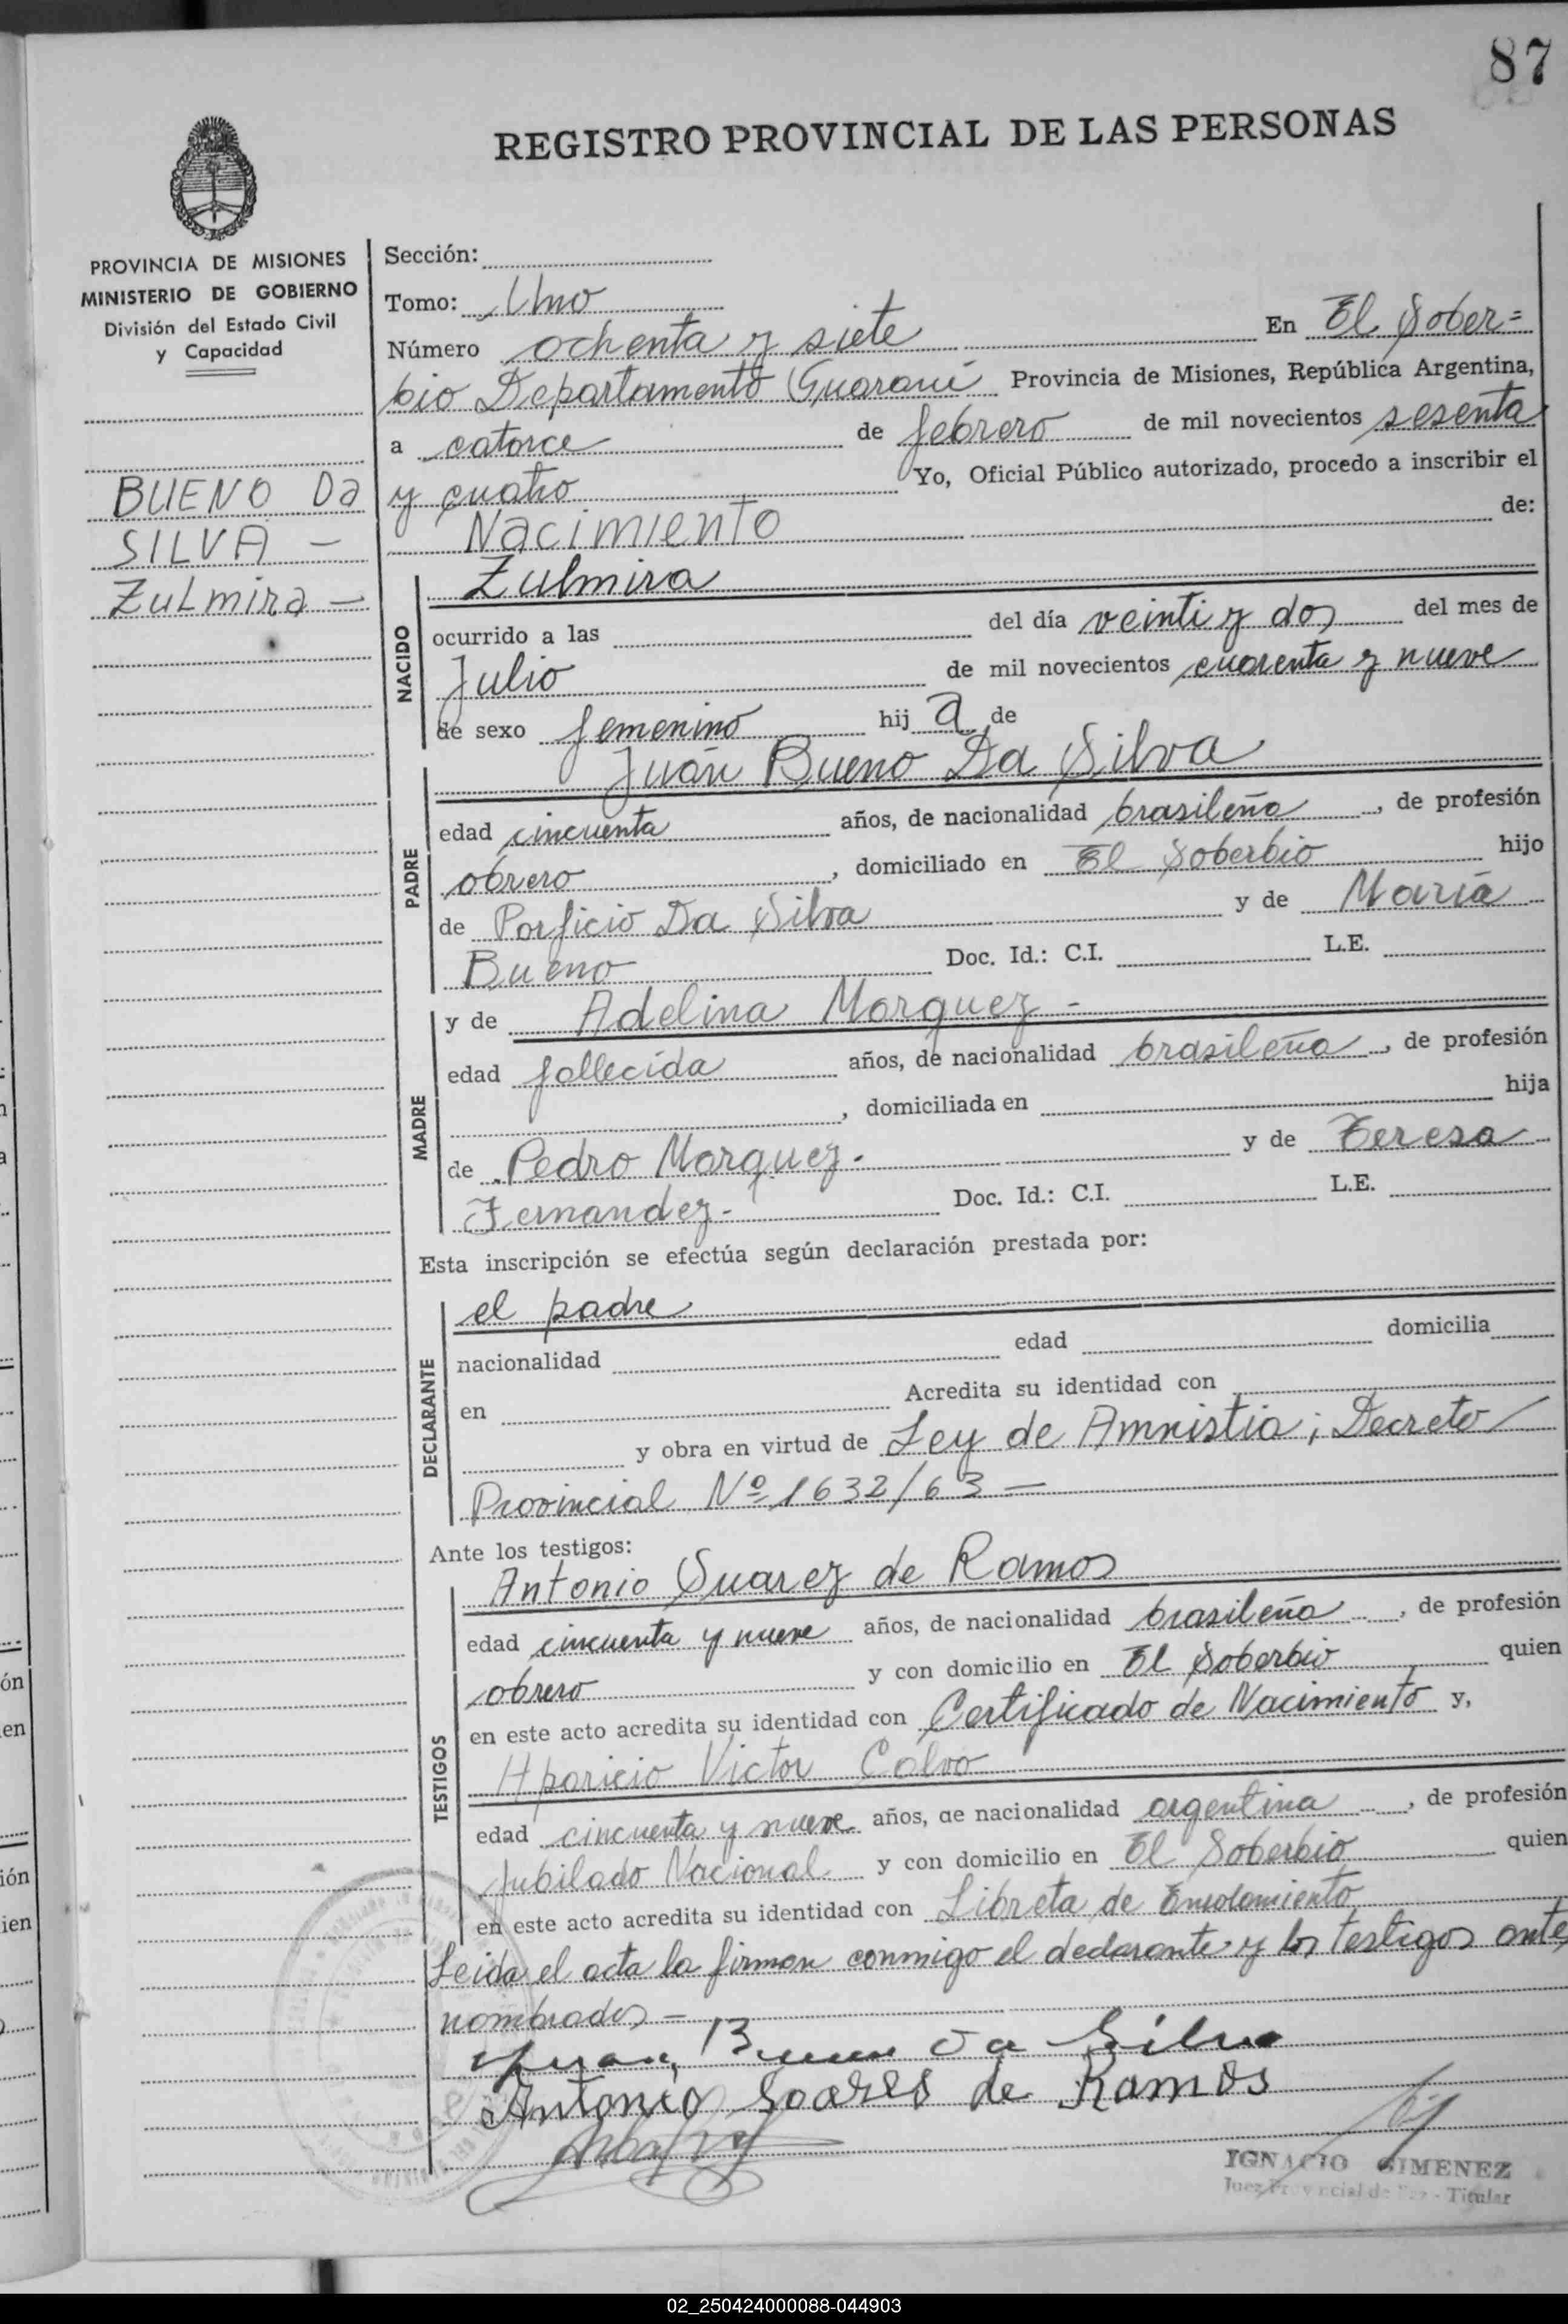 87
REGISTRO PROVINCIAL DE LAS PERSONAS
PROVINCIA DE MISIONES
MINISTERIO DE GOBIERNO
División del Estado Civil
y Capacidad
BUENO Da
SILVA -
Zulmira -
Sección:
Tomo: Uno
Número ochenta y siete En El Sober=
bio Departamento Guaraní Provincia de Misiones, República Argentina,
a catorce de febrero de mil novecientos sesenta
y cuatro Yo, Oficial Público autorizado, procedo a inscribir el
Nacimiento de:
NACIDO
Zulmira
ocurrido a las del día veinti y dos del mes de
Julio de mil novecientos cuarenta y nueve
de sexo femenino hij a de
PADRE
Juan Bueno Da Silva
edad cincuenta años, de nacionalidad brasileña, de profesión
obrero, domiciliado en El Soberbio hijo
de Porficio Da Silva y de María
Bueno Doc. Id.: C.I. L.E.
MADRE
y de Adelina Marquez -
edad fallecida años, de nacionalidad brasileña, de profesión
, domiciliada en hija
de Pedro Marquez. y de Teresa
Fernandez - Doc. Id.: C.I. L.E.
Esta inscripción se efectúa según declaración prestada por:
DECLARANTE
el padre
nacionalidad edad domicilia
en Acredita su identidad con
y obra en virtud de Ley de Amnistia; Decreto
Provincial Nº 1632/63 -
Ante los testigos:
TESTIGOS
Antonio Suarez de Ramos
edad cincuenta y nueve años, de nacionalidad brasileña, de profesión
obrero y con domicilio en El Soberbio quien
en este acto acredita su identidad con Certificado de Nacimiento y,
Aparicio Victor Calvo
edad cincuenta y nueve años, de nacionalidad argentina, de profesión
Jubilado Nacional y con domicilio en El Soberbio quien
en este acto acredita su identidad con Libreta de Enrolamiento
Leida el acta la firman conmigo el declarante y los testigos ante
nombrados -
Juan Bueno da Silva
Antonio Soares de Ramos
IGNACIO GIMENEZ
Juez Provincial de Paz - Titular
02_250424000088-044903